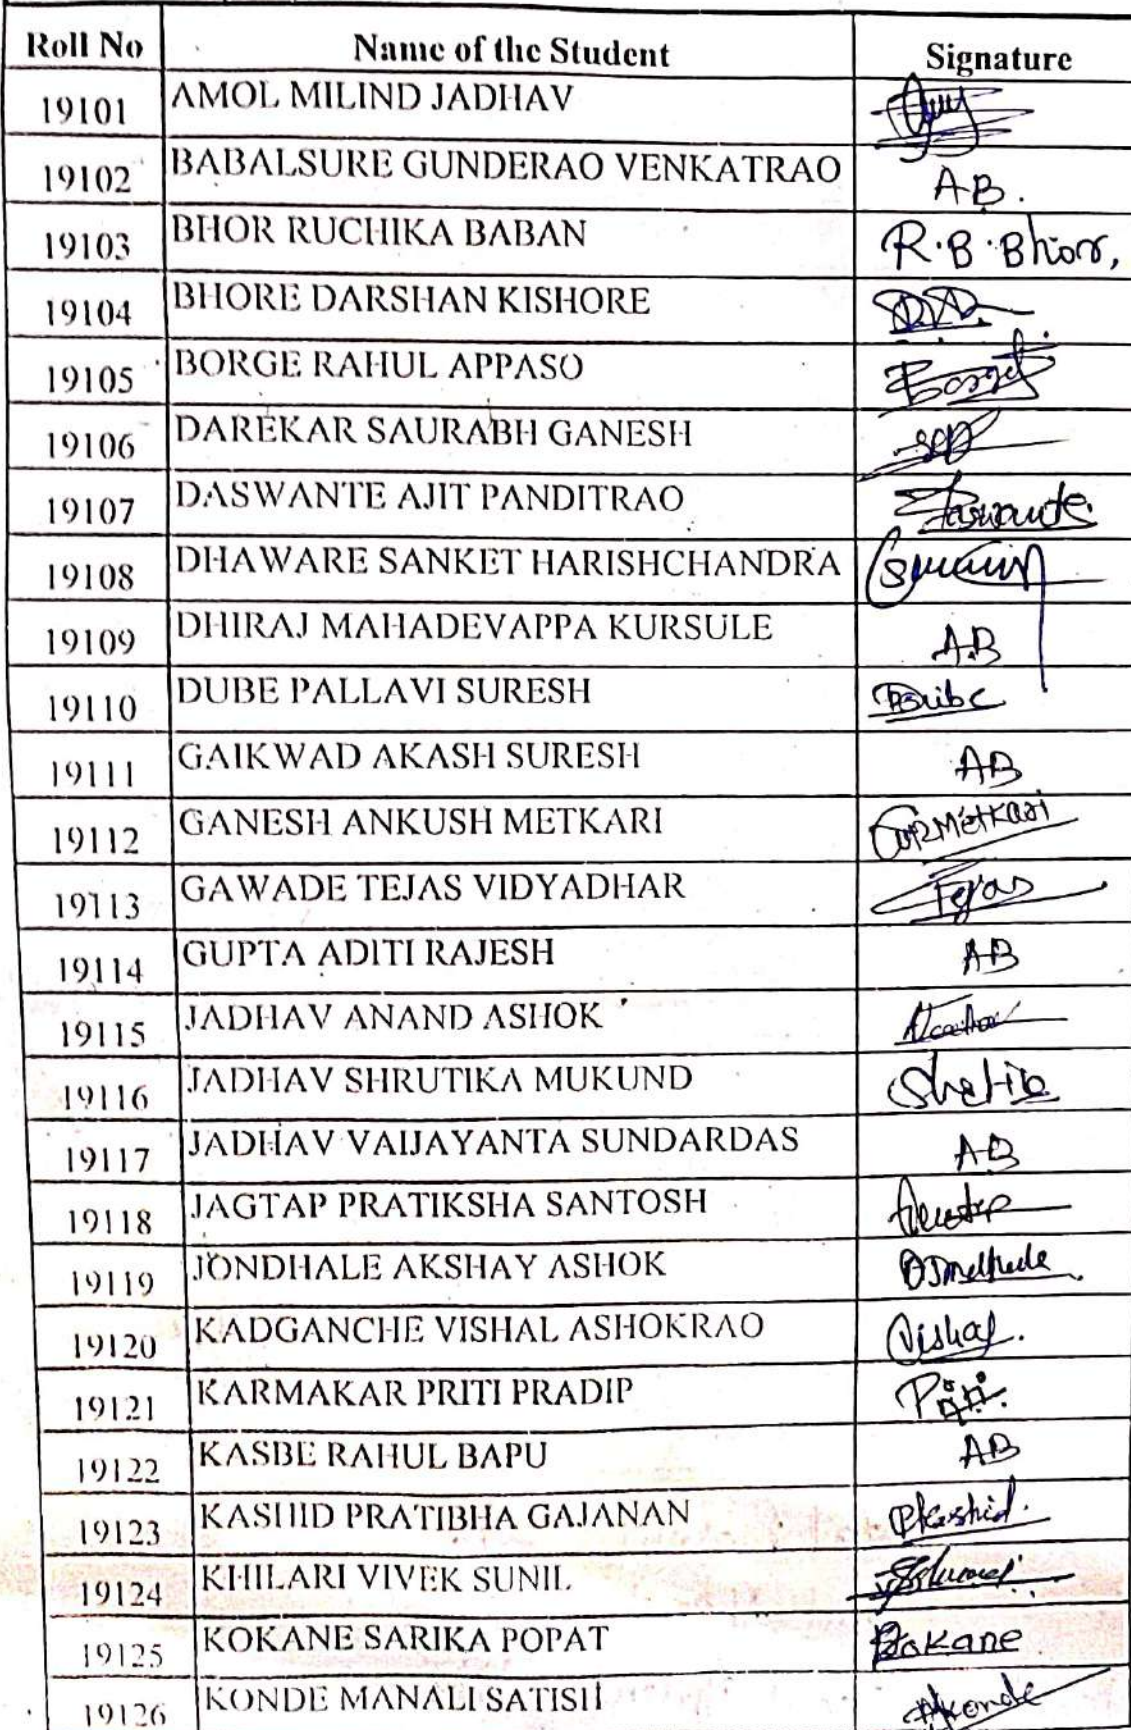 Roll No Name of the Student Signature
19101 AMOL MILIND JADHAV
19102 BABALSURE GUNDERAO VENKATRAO AB.
19103 BHOR RUCHIKA BABAN R.B.Bhor,
19104 BHORE DARSHAN KISHORE
19105 BORGE RAHUL APPASO
19106 DAREKAR SAURABH GANESH
19107 DASWANTE AJIT PANDITRAO
19108 DHAWARE SANKET HARISHCHANDRA
19109 DHIRAJ MAHADEVAPPA KURSULE A.B
19110 DUBE PALLAVI SURESH
19111 GAIKWAD AKASH SURESH AB
19112 GANESH ANKUSH METKARI
19113 GAWADE TEJAS VIDYADHAR Tejas
19114 GUPTA ADITI RAJESH AB
19115 JADHAV ANAND ASHOK
19116 JADHAV SHRUTIKA MUKUND
19117 JADHAV VAIJAYANTA SUNDARDAS AB
19118 JAGTAP PRATIKSHA SANTOSH
19119 JONDHALE AKSHAY ASHOK
19120 KADGANCHE VISHAL ASHOKRAO Vishal.
19121 KARMAKAR PRITI PRADIP
19122 KASBE RAHUL BAPU AB
19123 KASHID PRATIBHA GAJANAN Pkashid.
19124 KHILARI VIVEK SUNIL
19125 KOKANE SARIKA POPAT
19126 KONDE MANALI SATISH